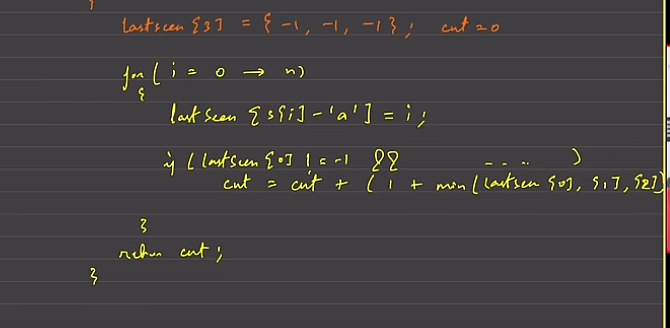 {
lastseen[3] = {-1, -1, -1}; cnt = 0
for(i = 0 → n)
{
lastseen[s[i]-'a'] = i;
if (lastseen[0] != -1 && - - .. )
cnt = cnt + (1 + min(lastseen[0], [1], [2])
}
return cnt;
}